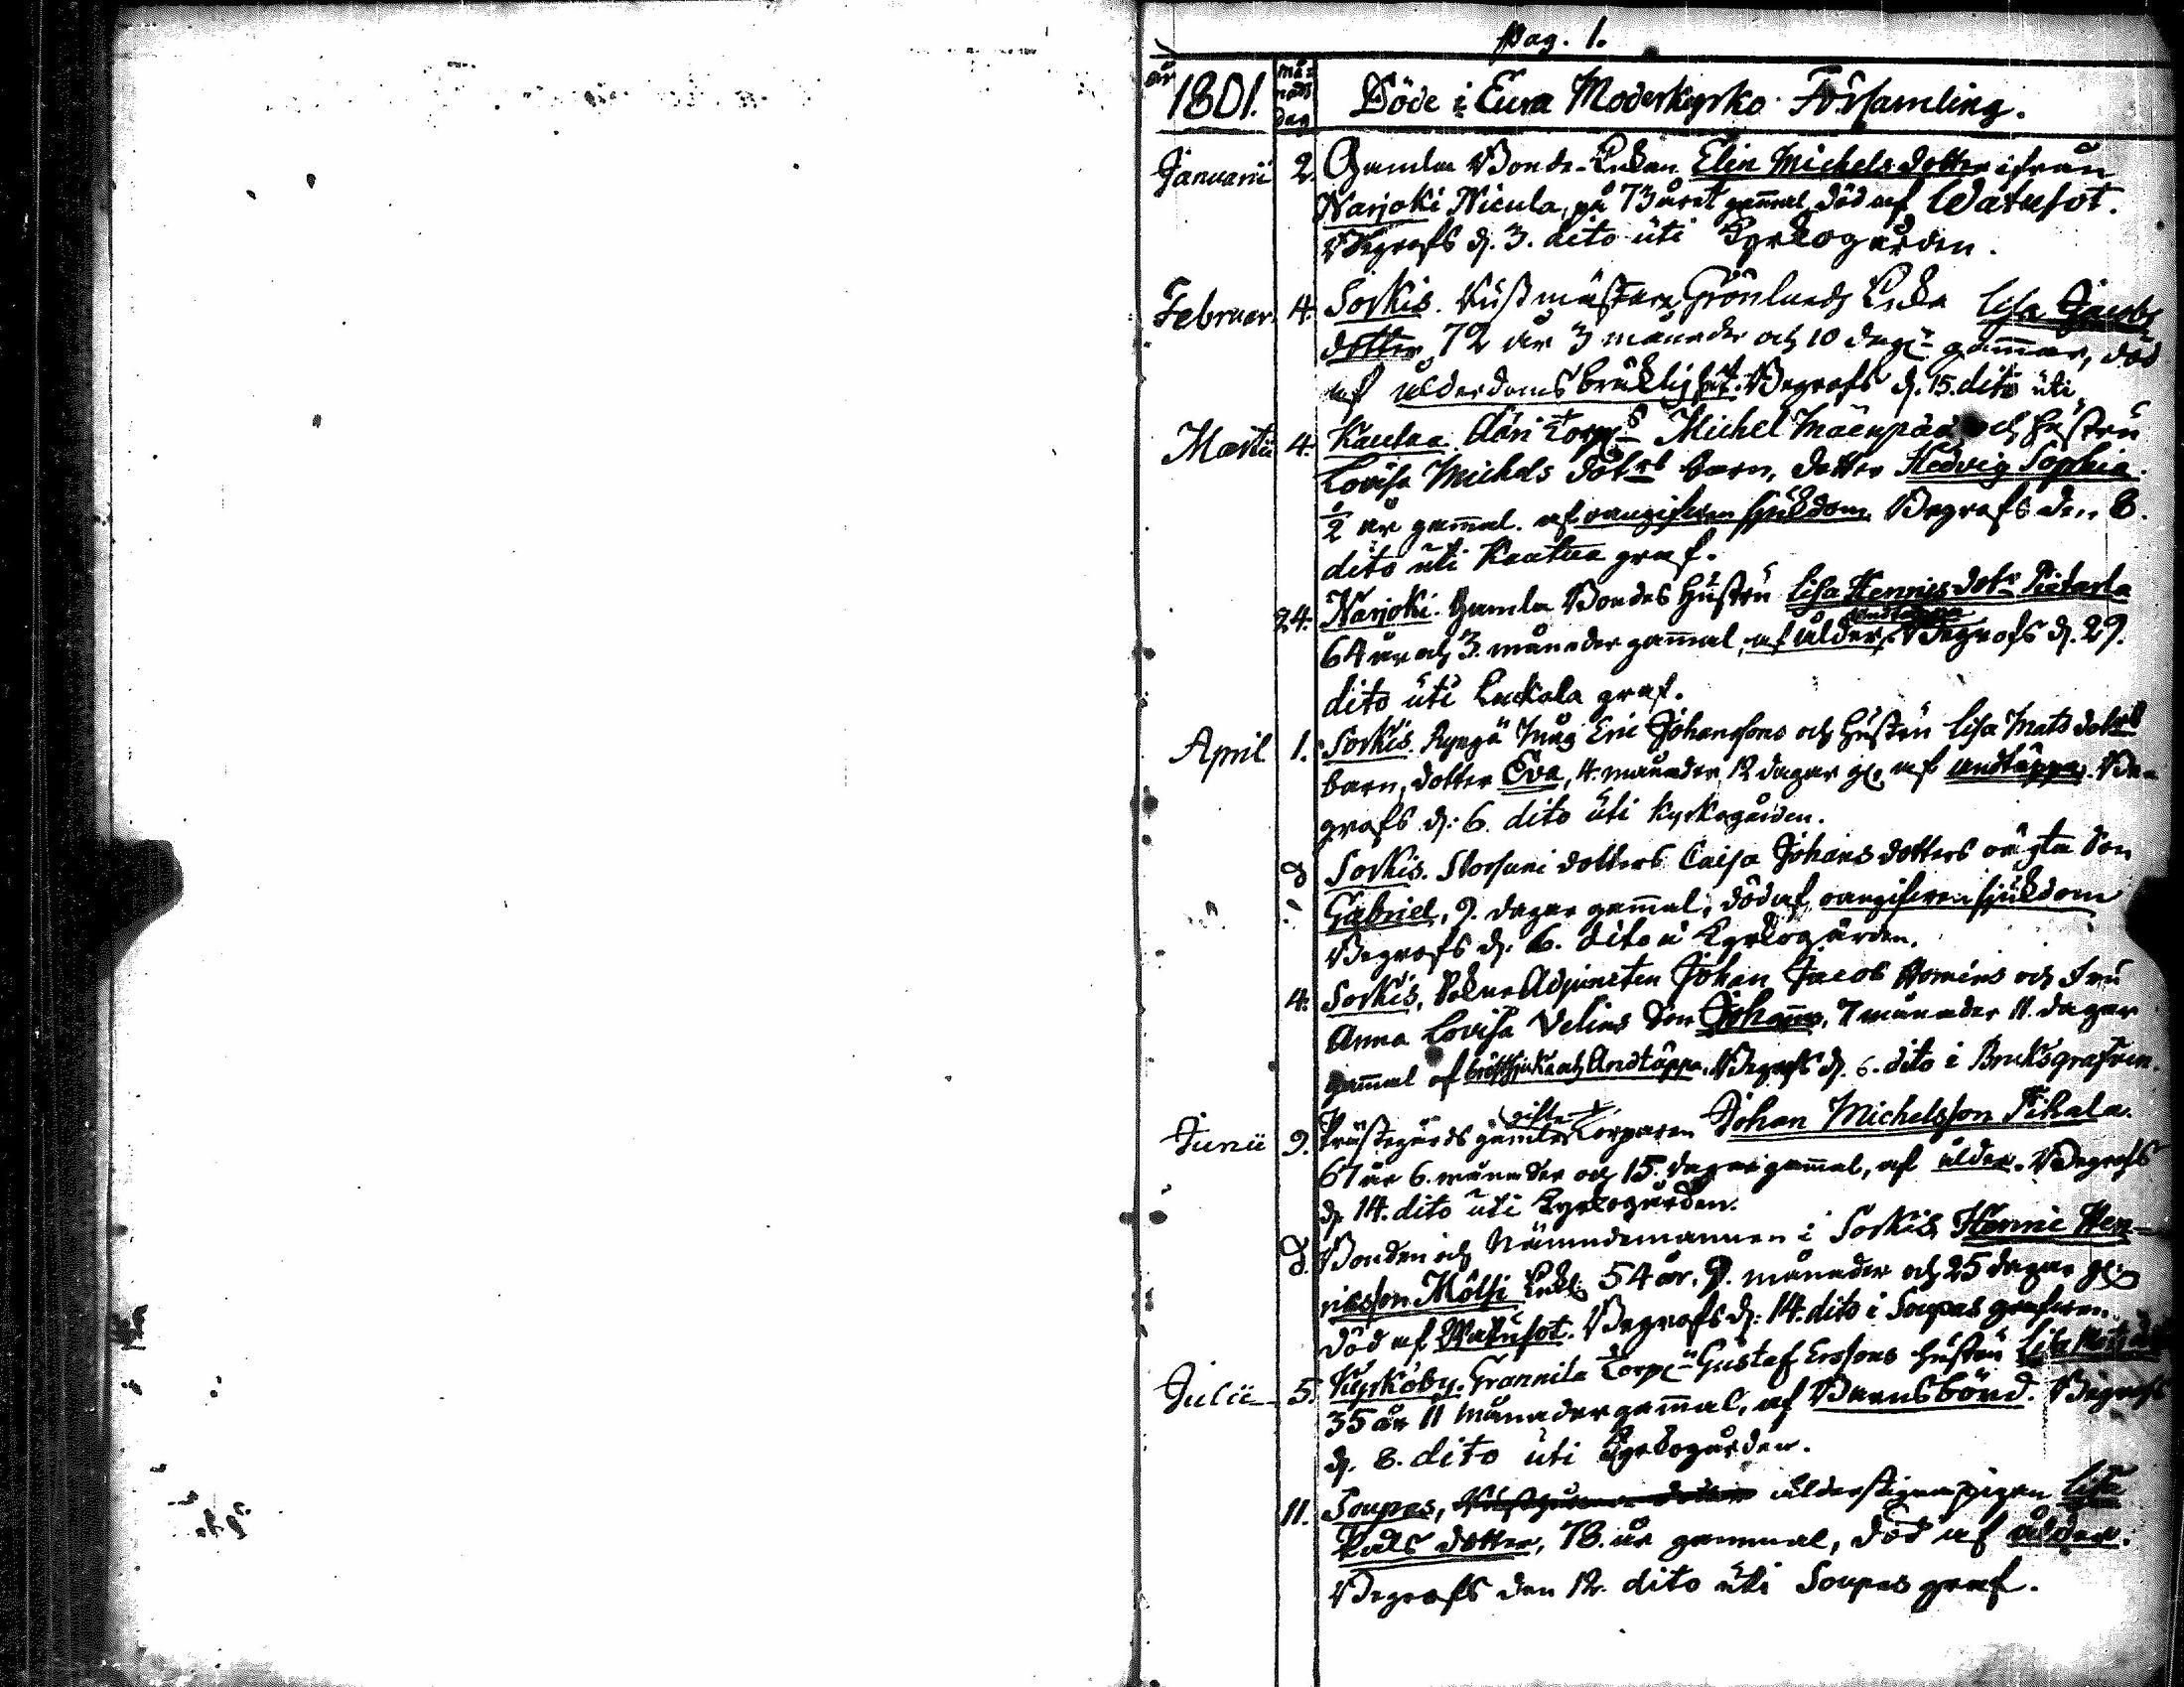 Pag. 1.
år 1801. månads dag Döde i Eura Moderkyrko Församling.
Januarii 2. Gamla Bonde-Enkan Elin Michelsdotter ifrån
Narjoki Nicula, på 73 året gam̄al, död af Watusot.
Begrofs d. 3. dito uti Kyrkogården.
Februar. 4. Sorkis. Rustmästare Grönlunds Enka Lisa Jacobs
dotter, 72 år 3 månader och 10 dag. gam̄al, död
af ålderdoms bräklighet. Begrofs d. 15. dito uti
Martii 4. Kautua. Torp. Michel Mäenpää och hustru
Lovisa Michels dotrs barn, dotter Hedvig Sophia.
1/2 år gam̄al. af oangifven sjukdom Begrofs den 8.
dito uti Kautua graf.
24. Narjoki. Gamla Bondes hustru Lisa Hennics dotr Pietarla
64 år och 3. månader gam̄al, af ålder Begrofs d. 29.
dito uti Luckala graf.
April 1. Sorkis. Måg Eric Johanssons och hustru Lisa Mats dotrs
barn, dotter Eva, 4. månader 12 dagar gl. af andtäppa. Be-
grofs d: 6. dito uti Kyrkogården.
d Sorkis. Storsuni dotters Caisa Johans dotters oägta Son
Gabriel, 9. dagar gam̄al, död af oangifven sjukdom
Begrofs d. 6. dito i Kyrkogården.
4. Sorkis, Adjuncten Johan Jacob och Fru
Anna Lovisa Velins Son Johan̄, 7 månader 11. dagar
gam̄al af bröstsjuka och Andtäppa. Begrofs d. 6. dito i Bruksgrafven.
Junii 9. Prästegårds gamle gifte Torparen Johan Michelsson Pihala.
67 år 6. månader och 15. dagar gam̄al, af ålder. Begrofs
d. 14. dito uti Kyrkogården.
d. Bonden och Nämndemannen i Sorkis Henric Hen-
ricsson Mölsi 54 år. 9. månader och 25 dagar gl.
död af Watusot. Begrofs d: 14. dito i Soupas grafven.
Julii 5. Kyrkoby. Grannila Torp. Gustaf Erssons hustru Lisa
35 år 11 månader gam̄al, af Barnsbörd. Begrofs
d. 8. dito uti Kyrkogården.
11. Soupas, ålderstigna pigan Lisa
dotter, 78. år gammal, död af ålder.
Begrofs den 12. dito uti Soupas graf.